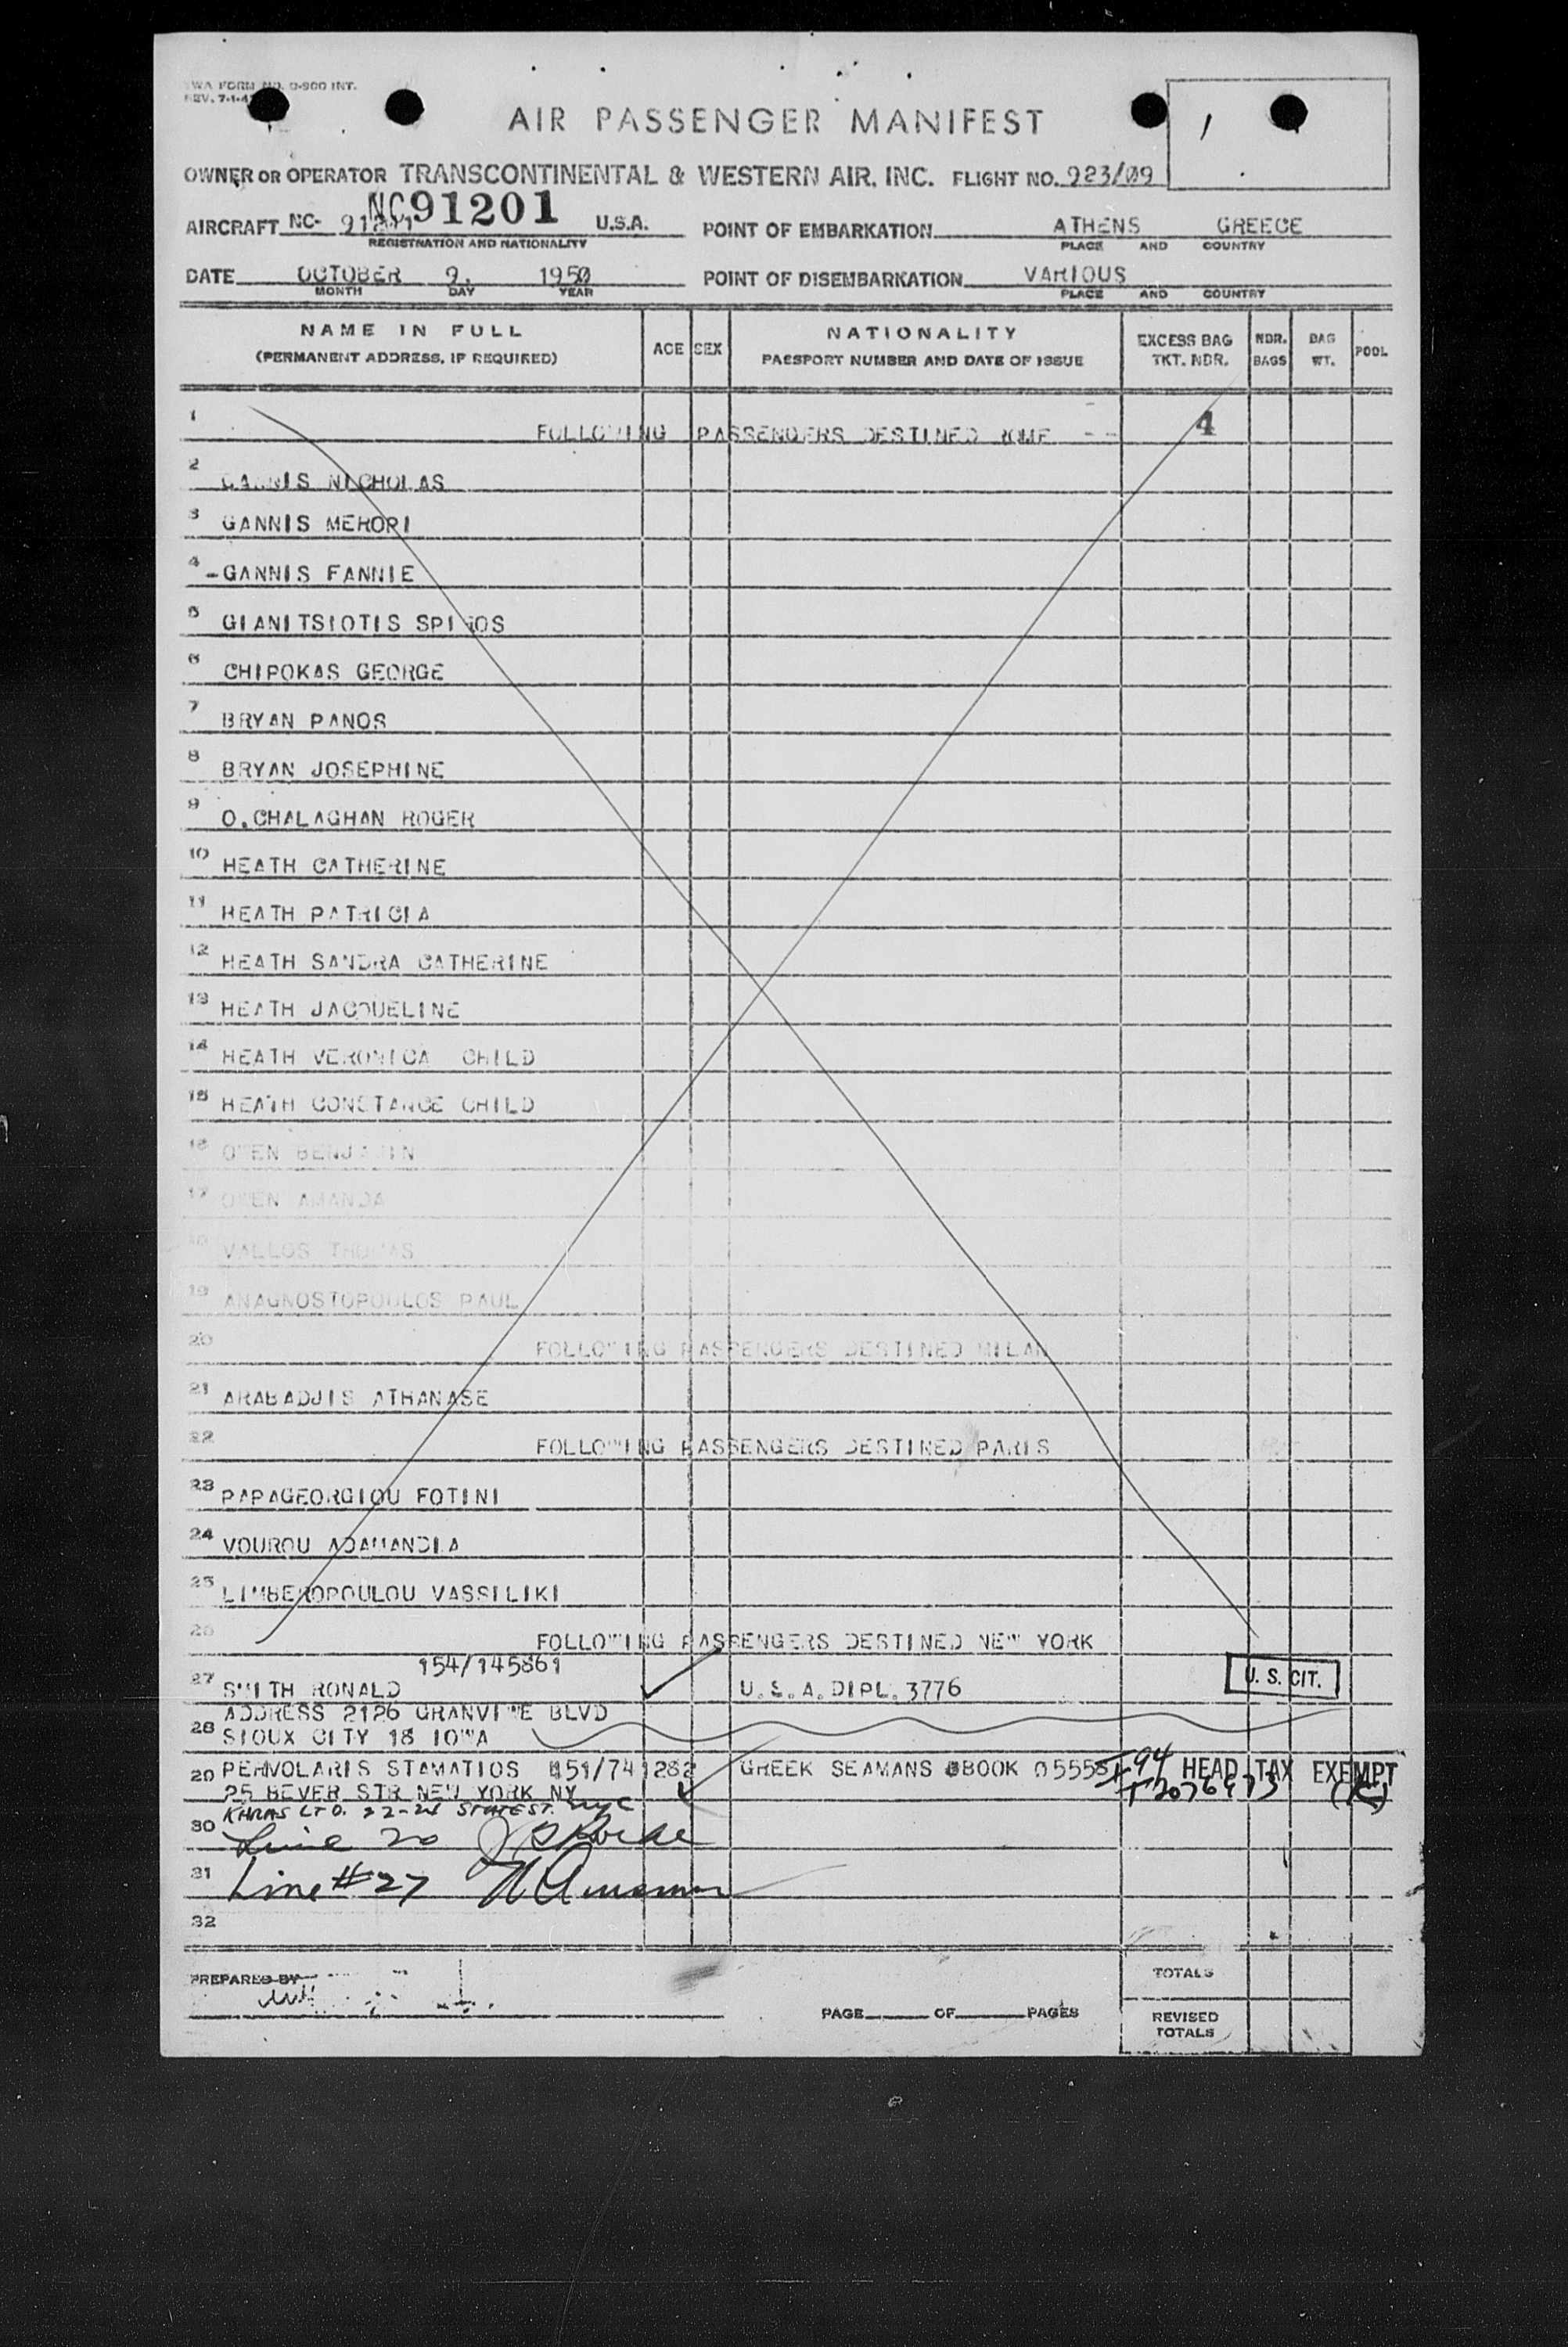 TWA FORM NO. O-900 INT.
REV. 7-1-4
AIR PASSENGER MANIFEST
1
OWNER OR OPERATOR TRANSCONTINENTAL & WESTERN AIR, INC. FLIGHT NO. 923/09
AIRCRAFT NC- NC91201 U.S.A. POINT OF EMBARKATION ATHENS GREECE
REGISTRATION AND NATIONALITY PLACE AND COUNTRY
DATE OCTOBER 9, 1950 POINT OF DISEMBARKATION VARIOUS
MONTH DAY YEAR PLACE AND COUNTRY
NAME IN FULL (PERMANENT ADDRESS, IF REQUIRED) AGE SEX NATIONALITY PASSPORT NUMBER AND DATE OF ISSUE EXCESS BAG TKT. NBR. NBR. BAGS BAG WT. POOL
1 FOLLOWING PASSENGERS DESTINED ROME - - 4
2 GANNIS NICHOLAS
3 GANNIS MERORI
4 -GANNIS FANNIE
5 GIANITSIOTIS SPIROS
6 CHIPOKAS GEORGE
7 BRYAN PANOS
8 BRYAN JOSEPHINE
9 O.CHALAGHAN ROGER
10 HEATH CATHERINE
11 HEATH PATRICIA
12 HEATH SANDRA CATHERINE
13 HEATH JACQUELINE
14 HEATH VERONICA CHILD
15 HEATH CONSTANCE CHILD
16 OWEN BENJAMIN
17 OWEN AMANDA
18 VALLOS THOMAS
19 ANAGNOSTOPOULOS PAUL
20 FOLLOWING PASSENGERS DESTINED MILAN
21 ARABADJIS ATHANASE
22 FOLLOWING PASSENGERS DESTINED PARIS
23 PAPAGEORGIOU FOTINI
24 VOUROU ADAMANDIA
25 LIMBEROPOULOU VASSILIKI
26 FOLLOWING PASSENGERS DESTINED NEW YORK
154/145861
27 SMITH RONALD U.S.A. DIPL. 3776 U. S. CIT.
ADDRESS 2126 GRANVIWE BLVD
28 SIOUX CITY 18 IOWA
29 PERVOLARIS STAMATIOS 151/741282 GREEK SEAMANS BOOK 05555 F94 HEAD TAX EXEMPT
25 BEVER STR NEW YORK NY (K)
KARAS LTD. 22-24 STATE ST. NYC
30 Line
31 Line #27
32
PREPARED BY
PAGE OF PAGES
TOTALS
REVISED TOTALS